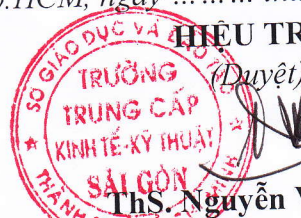 HCM, ngày
HIỆU TR
(Duyệt)
SỞ GIÁO DỤC VÀ
TRƯỜNG
TRUNG CẤP
KINH TẾ-KỸ THUẬT
SÀI GÒN
ThS. Nguyễn